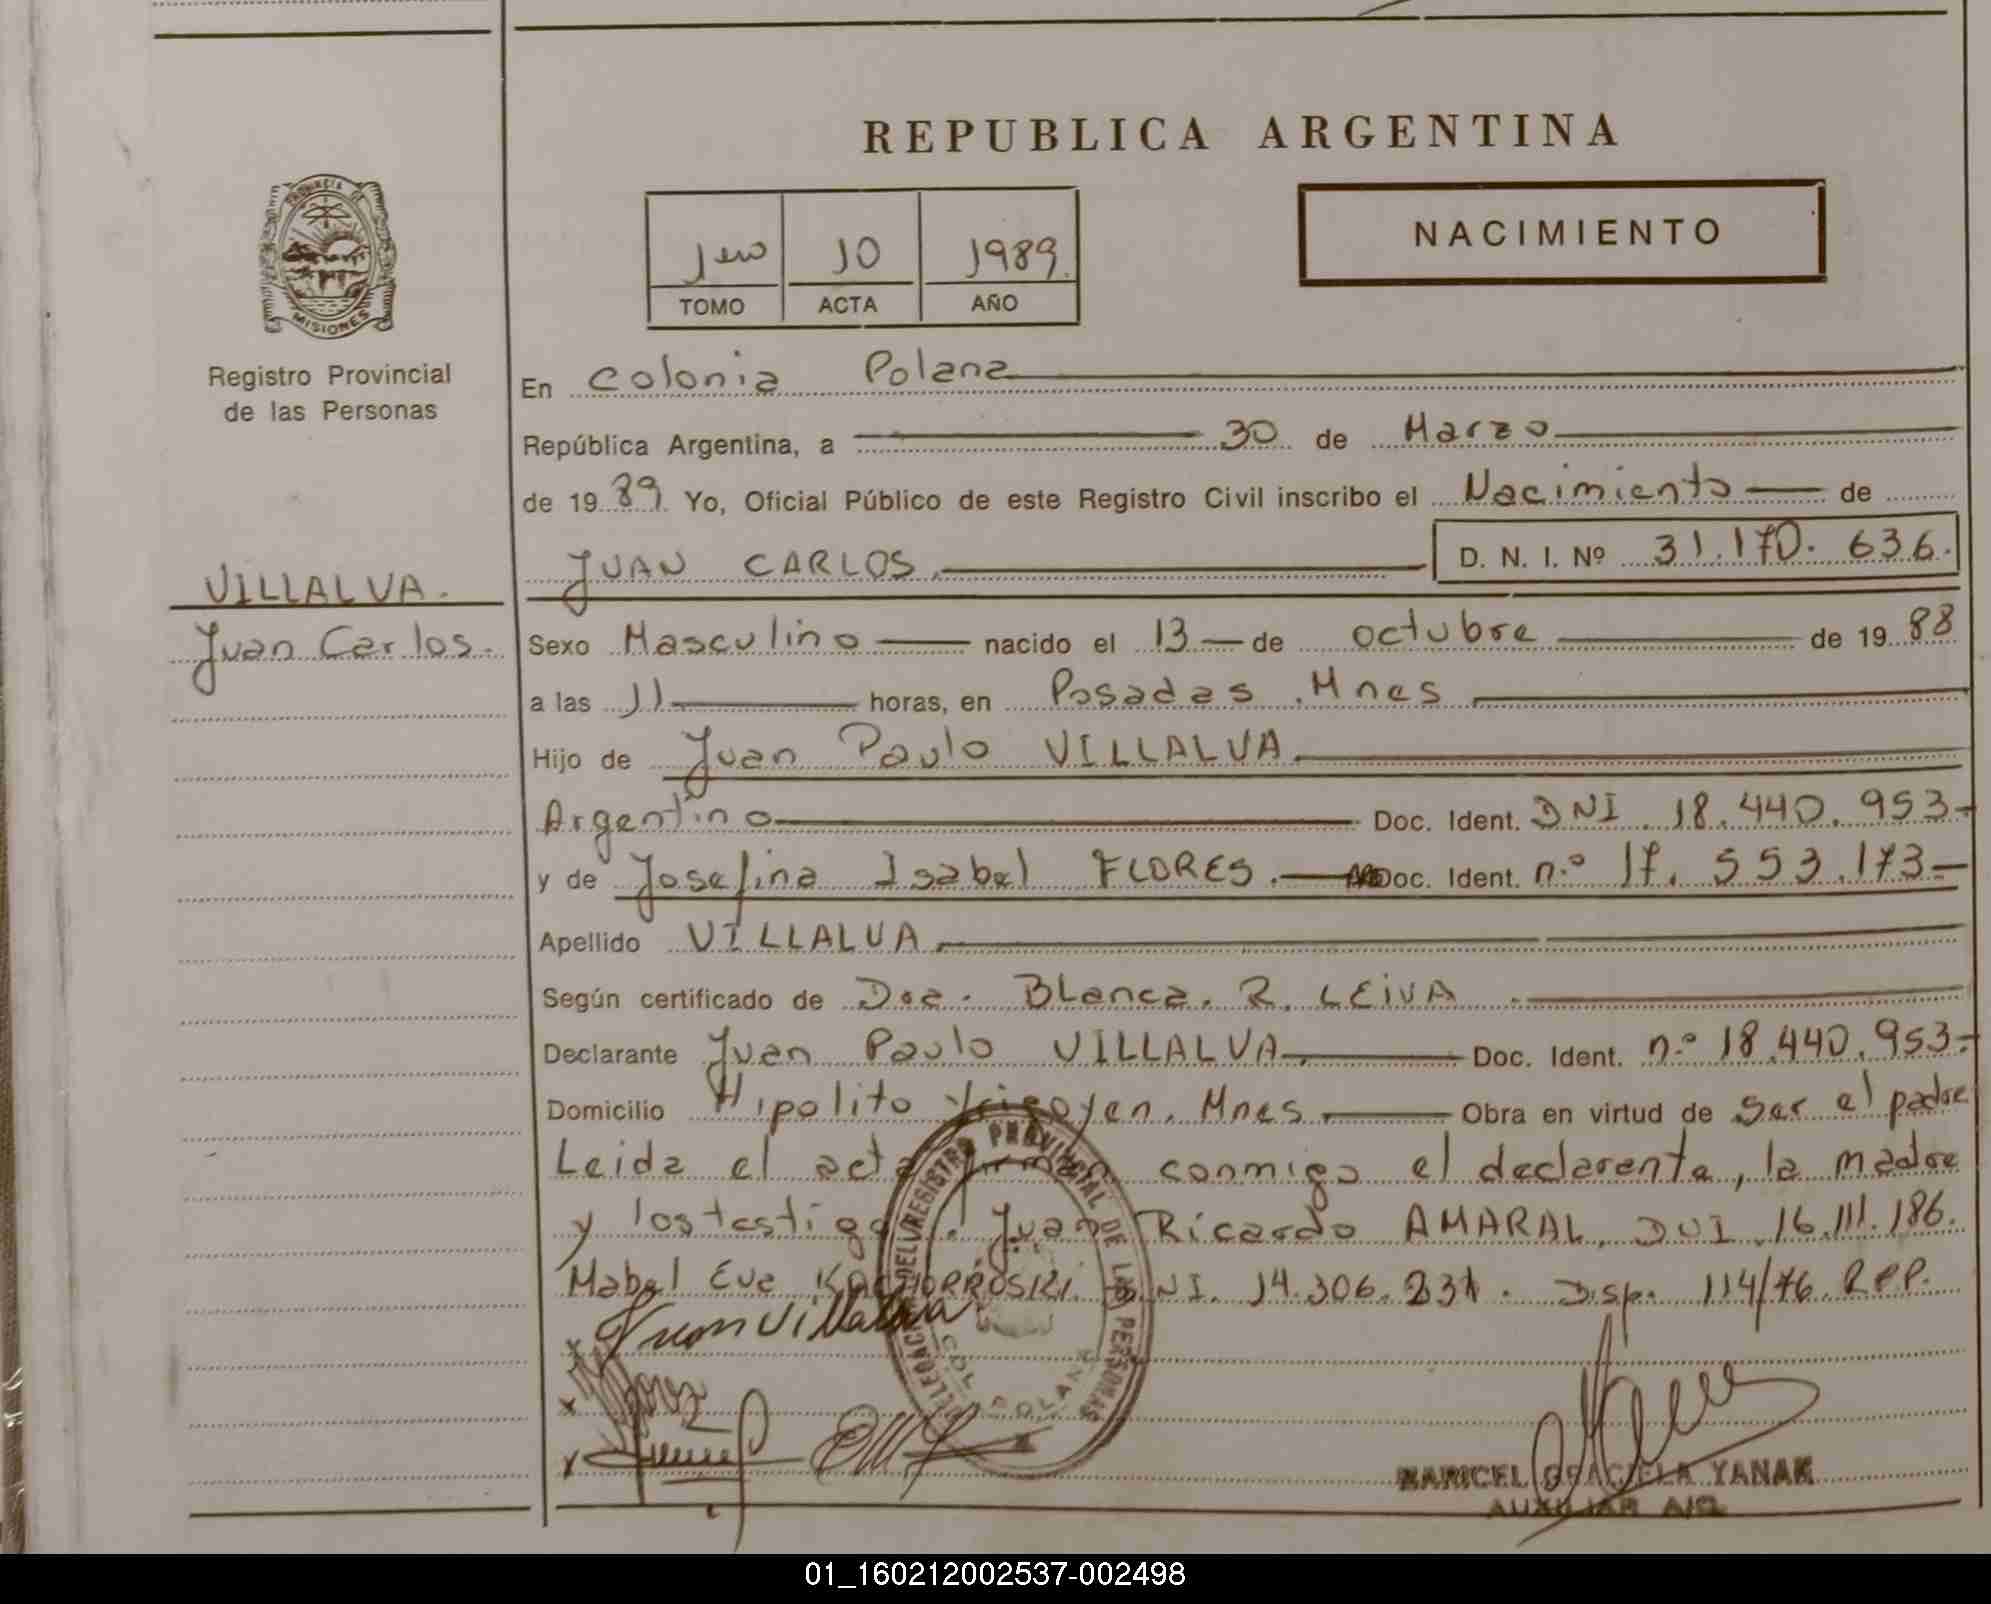 REPUBLICA ARGENTINA
NACIMIENTO
1ero 10 1989.
TOMO ACTA AÑO
PROVINCIA DE
MISIONES
Registro Provincial
de las Personas
VILLALVA.
Juan Carlos.
En Colonia Polana
República Argentina, a 30 de Marzo
de 1989. Yo, Oficial Público de este Registro Civil inscribo el Nacimiento de
JUAN CARLOS. D. N. I. Nº 31.170.636.
Sexo Masculino nacido el 13 de octubre de 1988
a las 11 horas, en Posadas. Mnes
Hijo de Juan Paulo VILLALVA
Argentino Doc. Ident. DNI. 18.440.953-
y de Josefina Isabel FLORES. Doc. Ident. n.º 17.553.173-
Apellido VILLALVA
Según certificado de Dra. Blanca. R. LEIVA
Declarante Juan Paulo VILLALVA Doc. Ident. n.º 18.440.953-
Domicilio Hipolito Yrigoyen. Mnes. Obra en virtud de ser el padre
Leida el acta firman conmigo el declarante, la madre
y los testigos. Juan Ricardo AMARAL. DNI. 16.111.186.
Mabel Eva D.NI. 14.306.231. Disp. 114/76 RPP.
Juan Villalva
REGISTRO PROVINCIAL DE LAS PERSONAS
COL. POLANA
MARICEL GRACIELA YANAK
AUXILIAR A/C
01_160212002537-002498